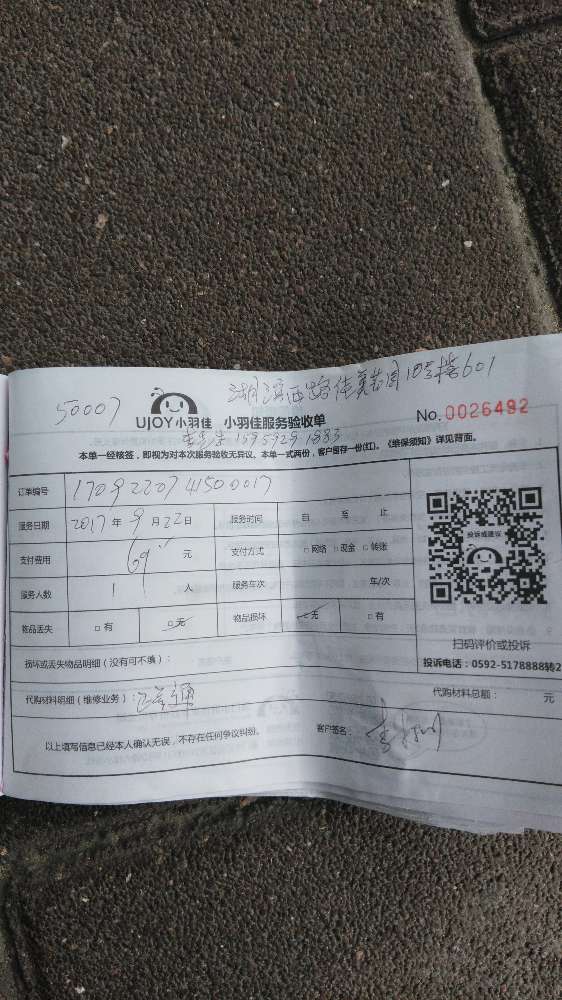 湖滨西路佳美花园10号楼601
50007
UJOY小羽佳 小羽佳服务验收单 No.0026492
先生 15959291883
本单一经核签，即视为对本次服务验收无异议。本单一式两份，客户留存一份(红)。《维保须知》详见背面。
订单编号 1709220741500017
服务日期 2017年9月22日 服务时间 自 至 止
支付费用 69 元 支付方式 □网络 □现金 □转账
服务人数 1 人 服务车次 车/次
物品丢失 □有 □无 物品损坏 □无 □有
投诉或建议
扫码评价或投诉
投诉电话：0592-5178888转2
损坏或丢失物品明细（没有可不填）：
代购材料明细（维修业务）： 通 代购材料总额： 元
以上填写信息已经本人确认无误，不存在任何争议纠纷。 客户签名：